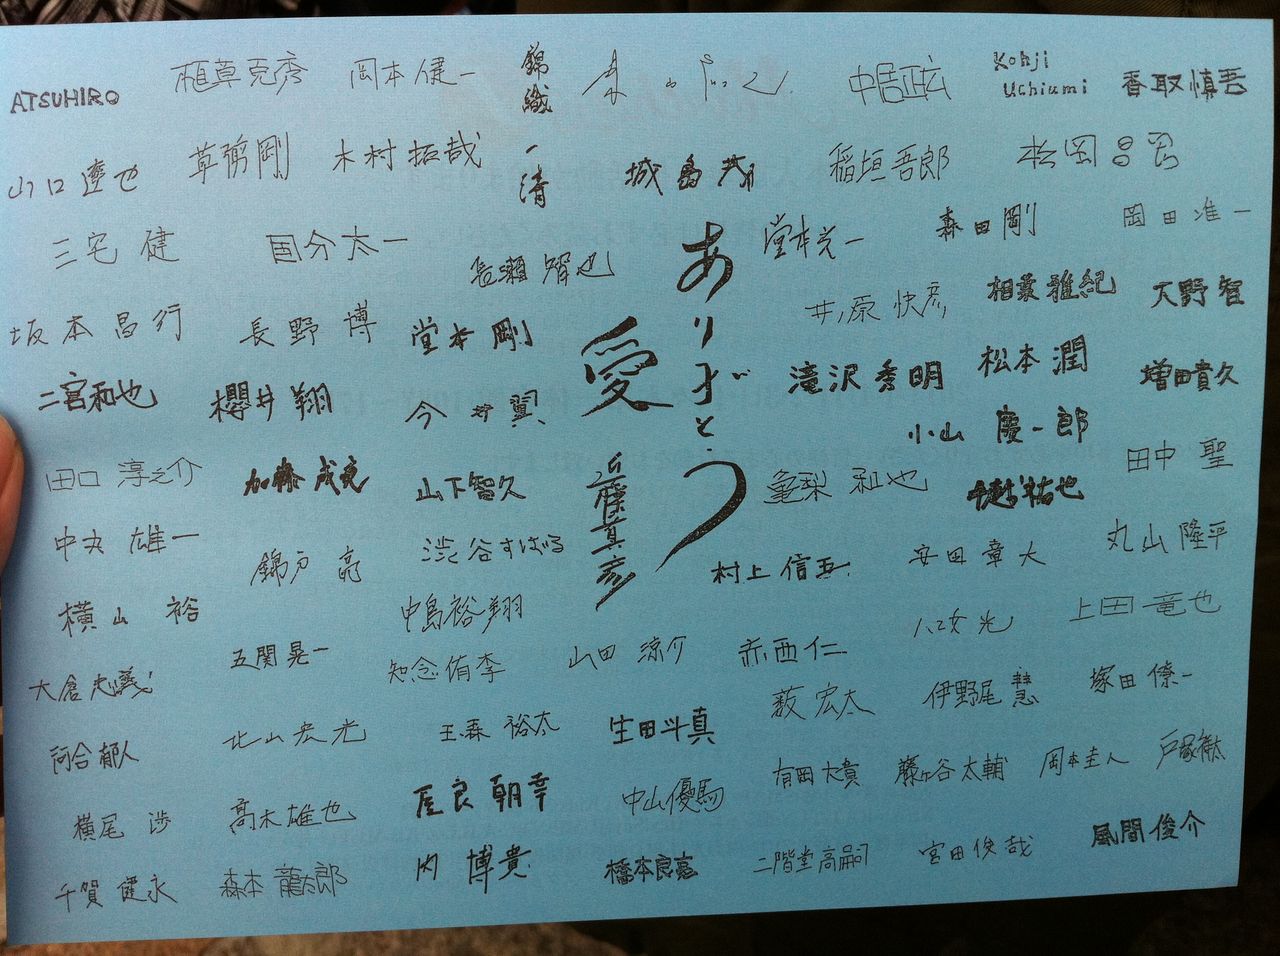 ATSUHIRO
植草克秀
岡本健一
錦織一清
中居正広
Kohji
Uchiumi
香取慎吾
山口達也
草彅剛
木村拓哉
城島茂
稲垣吾郎
松岡昌宏
三宅健
国分太一
長瀬智也
ありがとう
愛
近藤真彦
堂本光一
森田剛
岡田准一
坂本昌行
長野博
堂本剛
井ノ原快彦
相葉雅紀
大野智
二宮和也
櫻井翔
今井翼
滝沢秀明
松本潤
増田貴久
小山慶一郎
田口淳之介
加藤成亮
山下智久
亀梨和也
手越祐也
田中聖
中丸雄一
錦戸亮
渋谷すばる
村上信五
安田章大
丸山隆平
横山裕
中島裕翔
八乙女光
上田竜也
大倉忠義
五関晃一
知念侑李
山田涼介
赤西仁
薮宏太
伊野尾慧
塚田僚一
河合郁人
北山宏光
玉森裕太
生田斗真
有岡大貴
藤ヶ谷太輔
岡本圭人
戸塚祥太
横尾渉
高木雄也
屋良朝幸
中山優馬
千賀健永
森本龍太郎
内博貴
橋本良亮
二階堂高嗣
宮田俊哉
風間俊介